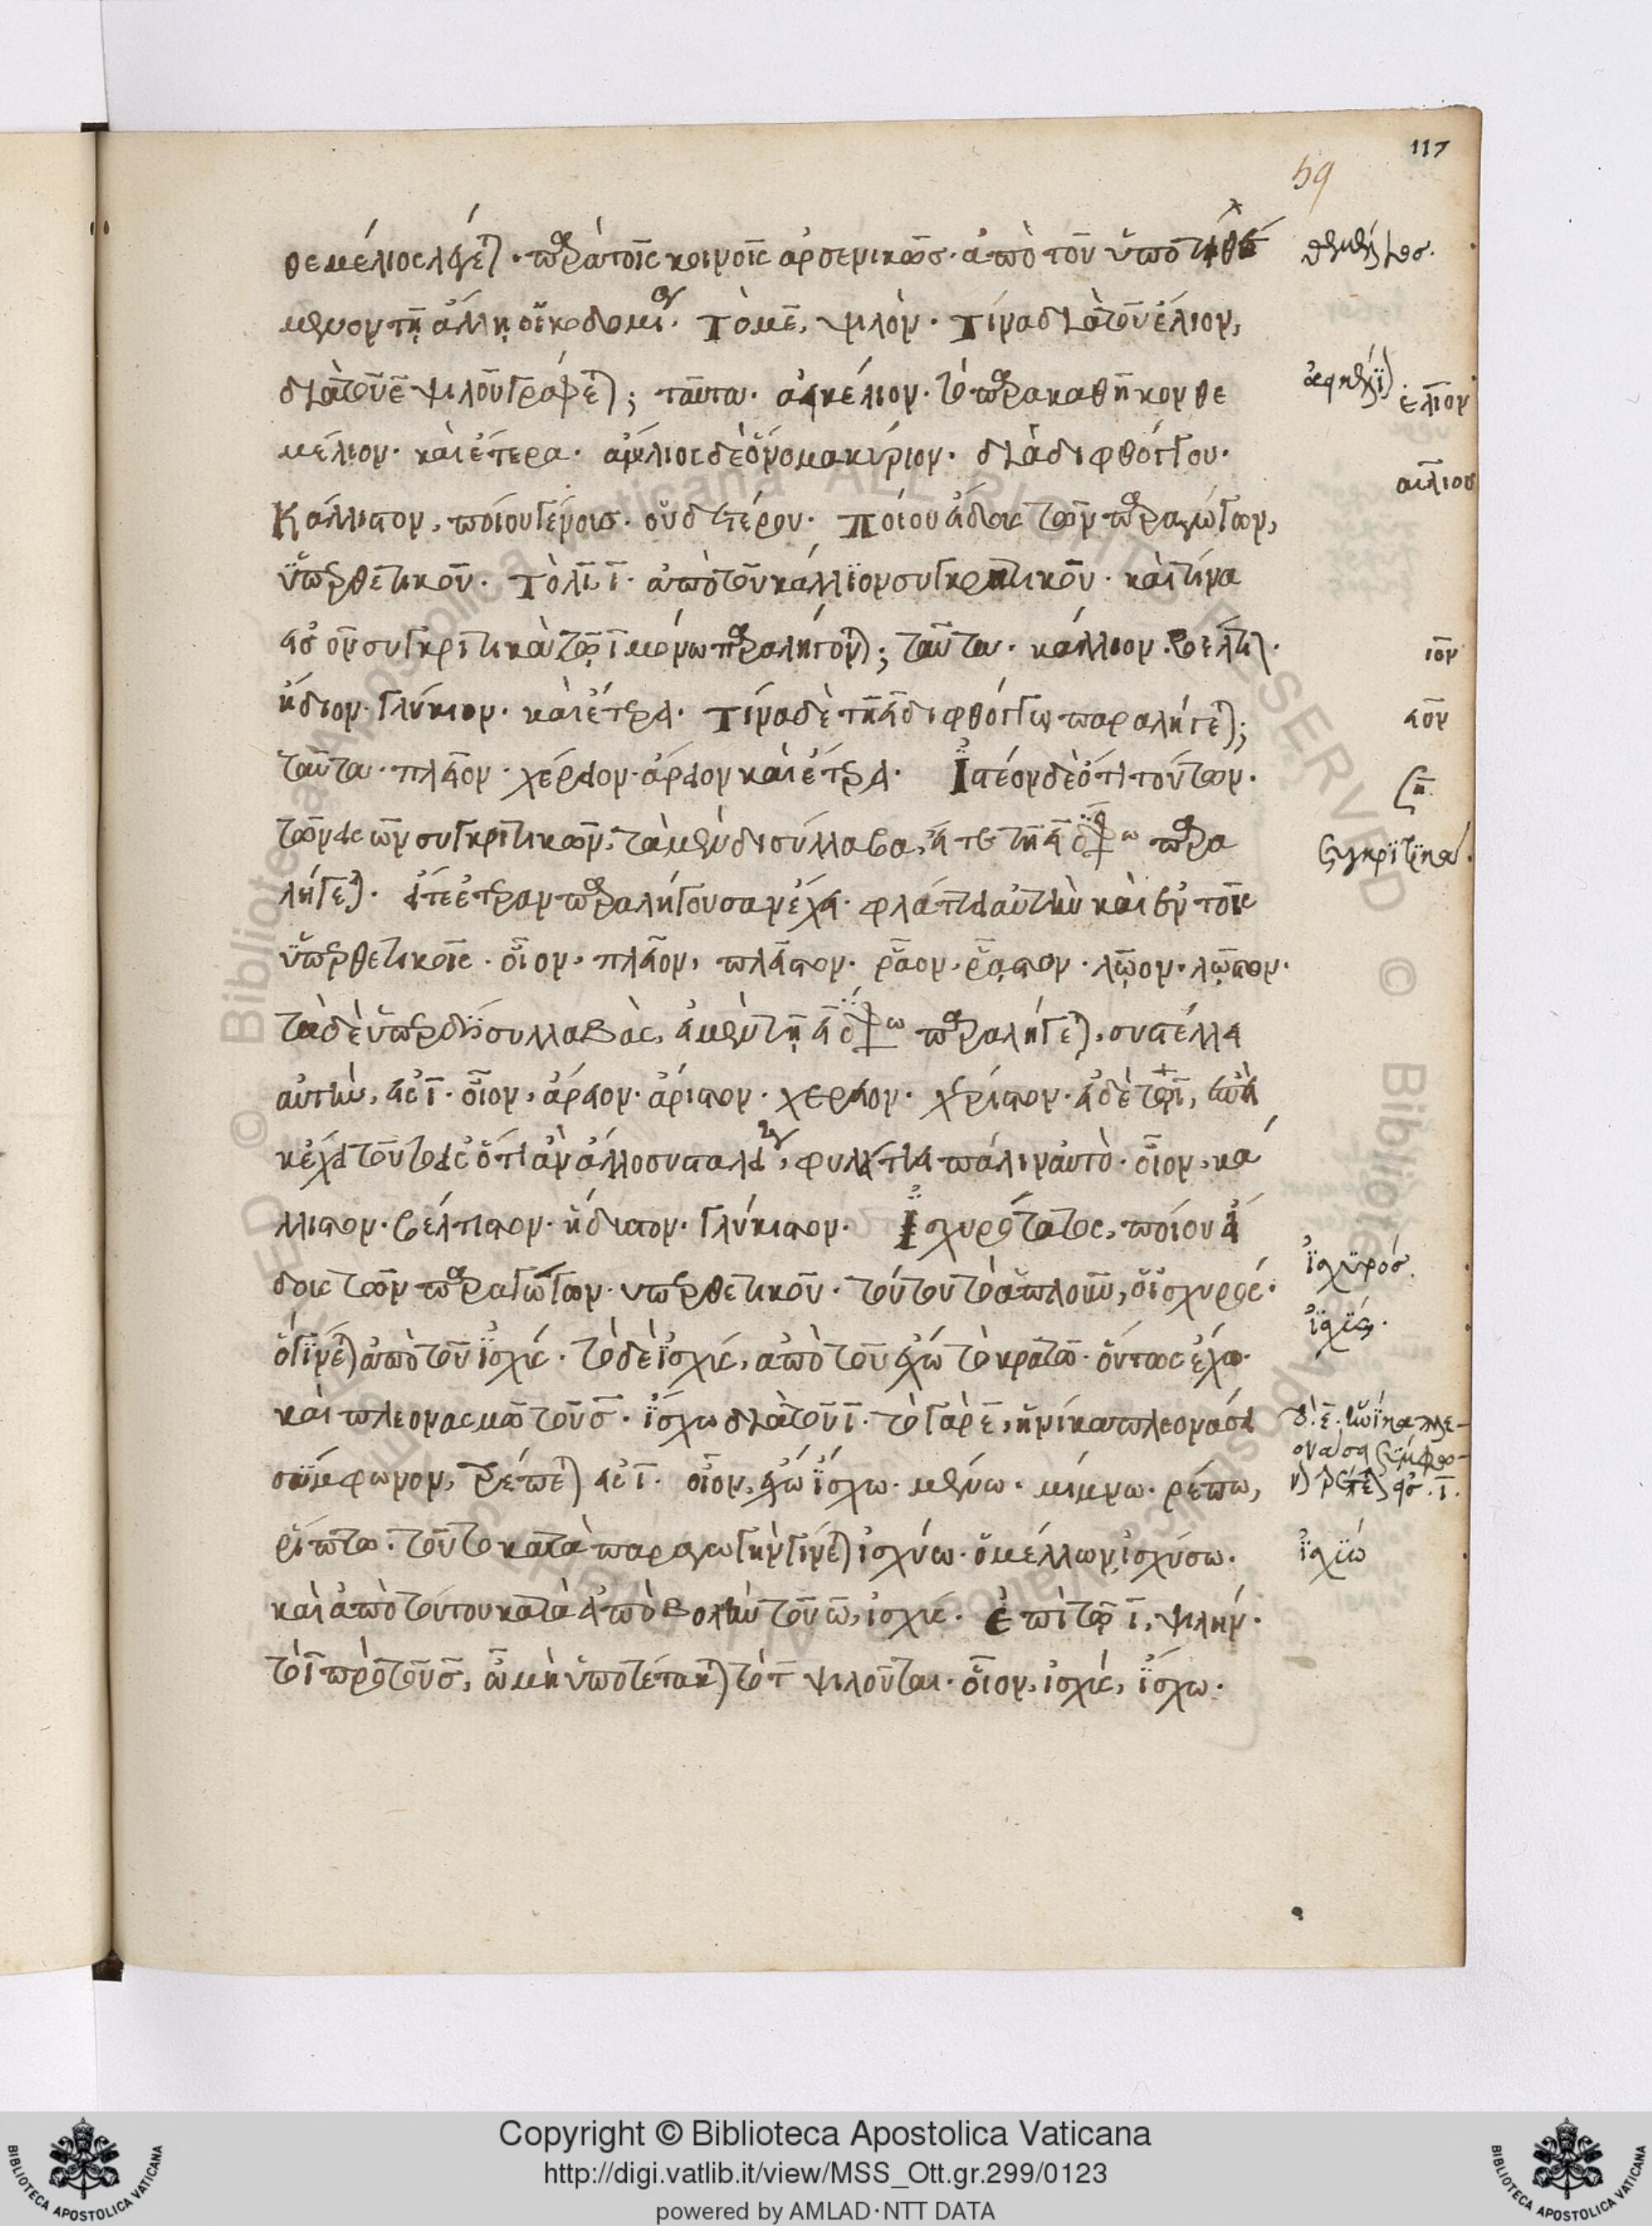 117
59
θεμέλιος λέγεται· παρὰ τοῖς κοινοῖς ἀρσενικῶς· ἀπὸ τοῦ ὑποτιθέ
μενον τῇ ἄλλῃ οἰκοδομῇ. Τὸ με, ψιλόν. Τίνα διὰ τοῦ έλιον,
διὰ τοῦ ε ψιλοῦ γράφεται; ταῦτα· τὸ παρακαθῆκον θε
μέλιον· καὶ ἕτερα· αἴλιος δὲ ὄνομα κύριον· διὰ διφθόγγου.
Κάλλιστον, ποίου γένους· οὐδετέρου. Ποίου εἴδους τῶν παραγώγων,
ὑπερθετικοῦ. Τὸ λι ι· ἀπὸ τοῦ κάλλιον συγκριτικοῦ. καὶ τίνα
εἰς ον συγκριτικὰ τῷ ι μόνῳ παραλήγονται; ταῦτα· κάλλιον. βέλτιον.
ἥδιον. γλύκιον. καὶ ἕτερα. Τίνα δὲ τῇ ει διφθόγγῳ παραλήγεται;
ταῦτα· πλεῖον· χέρειον· ἄρειον καὶ ἕτερα. Ἰστέον δὲ ὅτι τούτων.
τῶν εἰς ων συγκριτικῶν, τὰ μὲν δισύλλαβα, εἴτε τῇ ει διφθόγγῳ παρα
λήγεται. εἴτε ἑτέραν παραλήγουσαν ἔχει· φυλάττει αὐτὴν καὶ ἐν τοῖς
ὑπερθετικοῖς· οἷον, πλεῖον, πλεῖστον. ῥᾷον, ῥᾷστον. λῷον. λῷστον.
τὰ δὲ ὑπὲρ δύο συλλαβὰς, εἰ μὲν τῇ ει διφθόγγῳ παραλήγεται, συστέλλει
αὐτὴν, εἰς ι· οἷον, ἄρειον. ἄριστον. χέρειον. χέριστον. εἰ δὲ τῷ ι, ἐπεὶ
κἔχει τοῦτο εἰς ὅτι ἂν ἄλλο συσταλεῖ, φυλάττει πάλιν αὐτό· οἷον, κά
λλιστον. βέλτιστον. ἥδιστον. γλύκιστον. Ἰσχυρότατος, ποίου εἴ
δους τῶν παραγώγων. ὑπερθετικοῦ. τούτου τὸ ἁπλοῦν, ὁ ἰσχυρός.
ὃ γίνεται ἀπὸ τοῦ ἰσχύς. τὸ δὲ ἰσχύς, ἀπὸ τοῦ ἔχω τὸ κρατῶ· οὕτως ἔχω·
καὶ πλεονασμῷ τοῦ σ. ἴσχω διὰ τοῦ ι. τὸ γὰρ ε, ἡνίκα πλεονάσει
σύμφωνον, τρέπεται εἰς ι. οἷον, ἔχω ἴσχω. μένω. μίμνω. ῥέπω,
ῥίπτω. τοῦτο κατὰ παραγωγὴν γίνεται ἰσχύω. ὁ μέλλων, ἰσχύσω.
καὶ ἀπὸ τούτου κατὰ ἀποβολὴν τοῦ ω, ἰσχύς. Ἐπὶ τῷ ι, ψιλήν.
τὸ ι πρὸ τοῦ σ, ὦ μὴ ὑποτέτακται τὸ τ ψιλοῦται. οἷον, ἰσχύς, ἴσχω.
θεμέλιος.
ελιον
αιλιος
ιον
ειον
συγκριτικά.
ἰσχυρός.
ἰσχύς.
τὸ ε. ἡνίκα πλε-
ονάσει σύμφω-
ν τρέπεται εἰς ι.
ἰσχύω
Copyright © Biblioteca Apostolica Vaticana
http://digi.vatlib.it/view/MSS_Ott.gr.299/0123
powered by AMLAD·NTT DATA
BIBLIOTECA APOSTOLICA VATICANA
BIBLIOTECA APOSTOLICA VATICANA